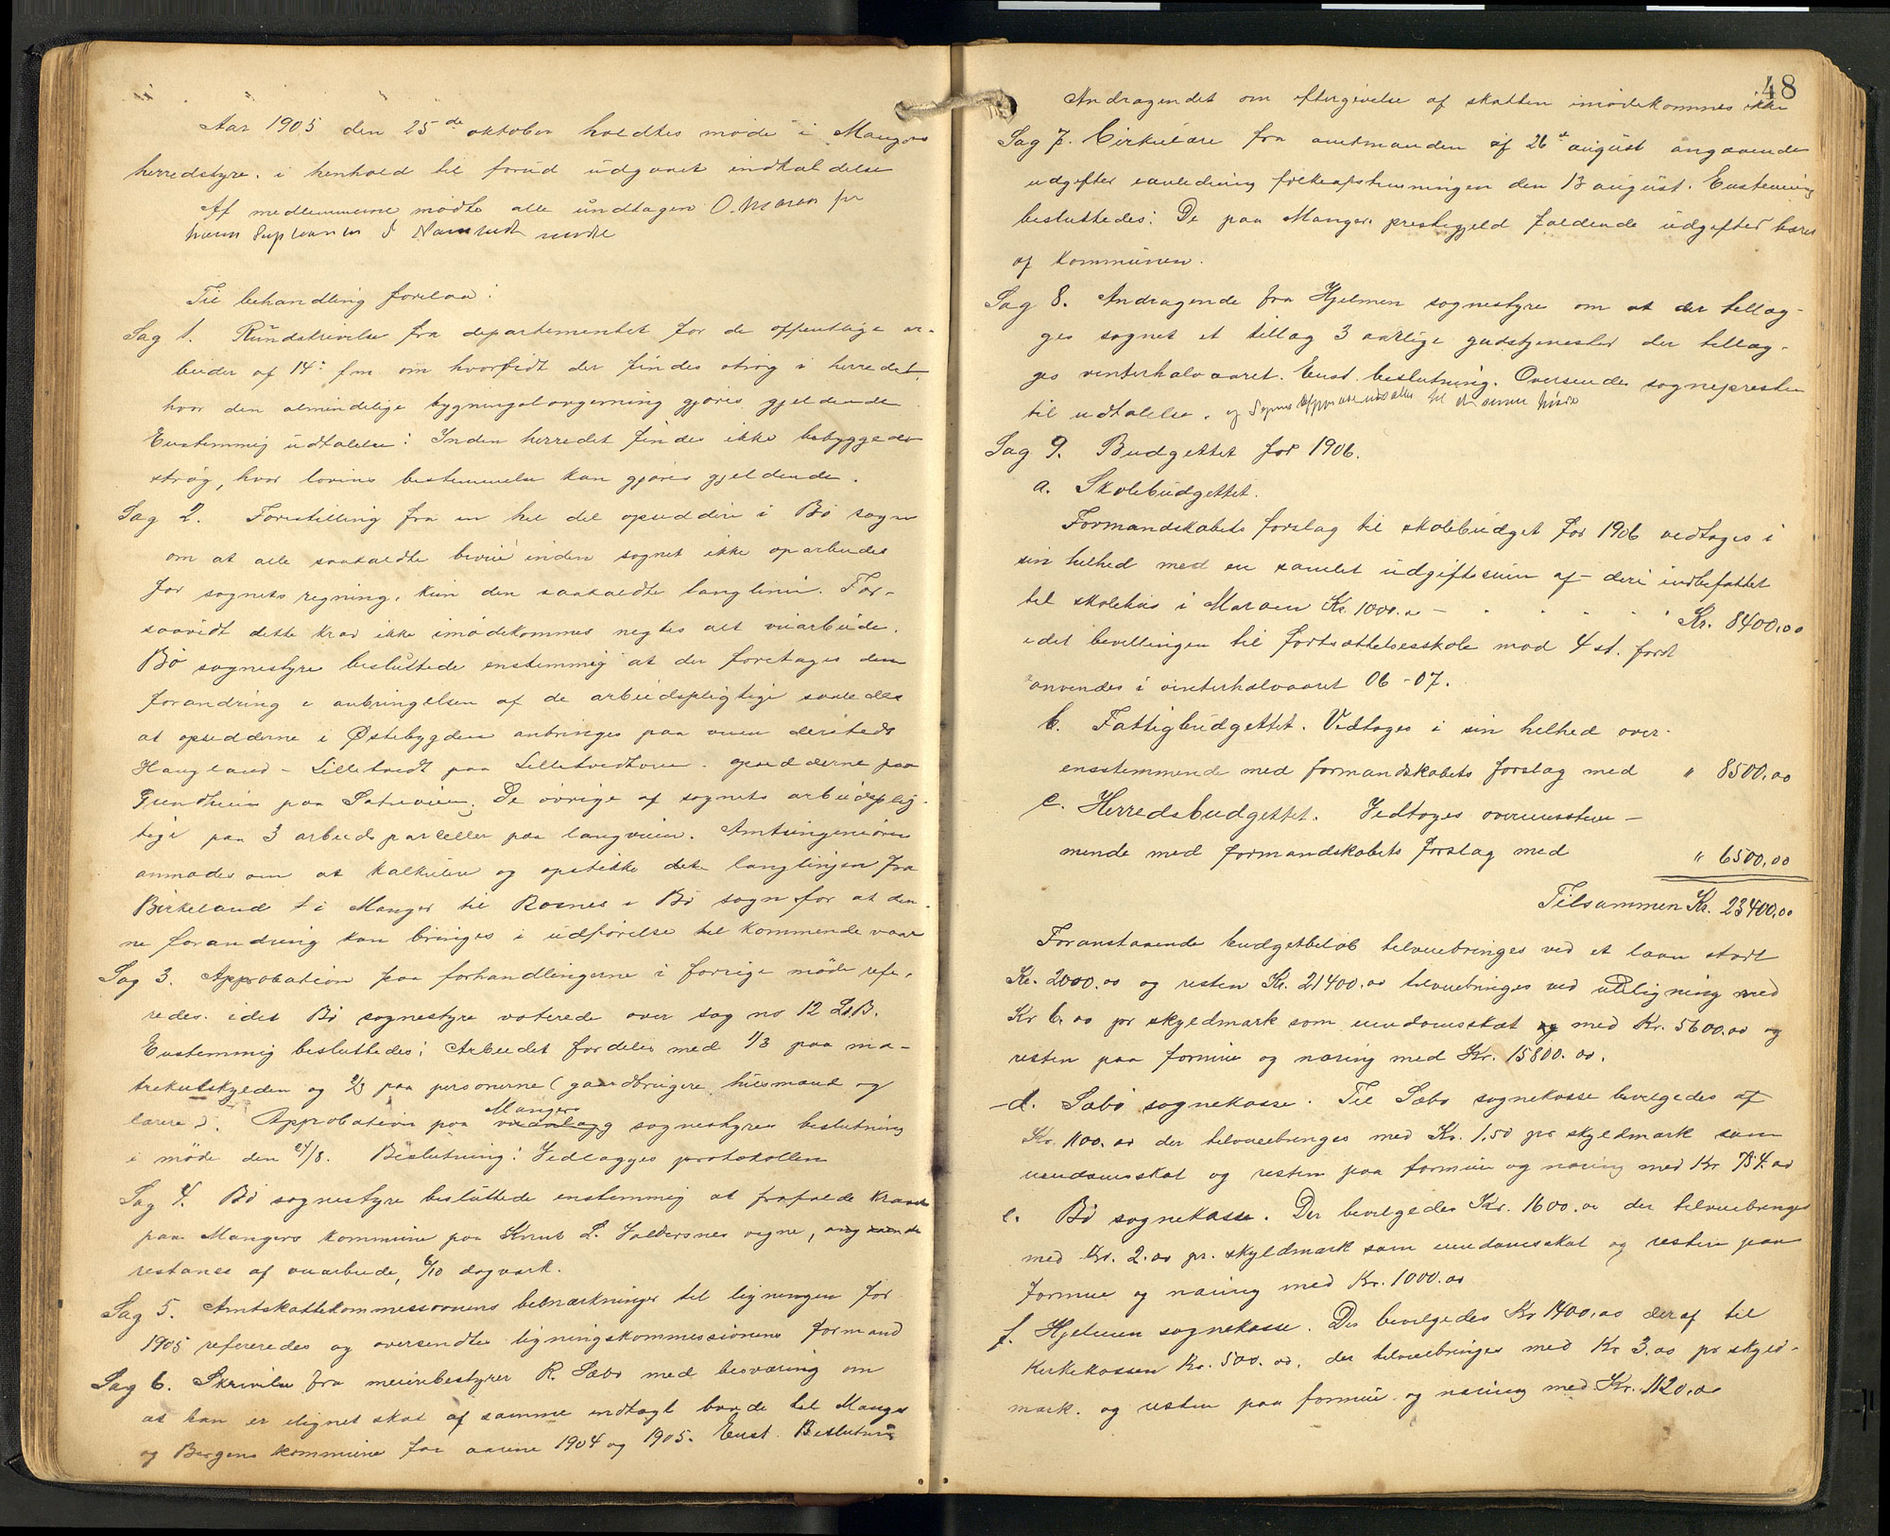 Aar 1905 den 25de oktober holdtes møde i Mangers
herredstyre. i henhold til forud udgaaet indkaldelse
Af medlemmerne mødte alle undtagen O. Maren for
ham Suplianten S Namtvedt mødte
Til behandling forelaa:
Sag 1. Rundskrivelse fra departementet for de offentlige ar-
beider af 14: f.m. om hvorvidt der findes strøg i herredet,
hvor den almindelige bygningslovgivning gjøres gjeldende
Enstemmig udtalelse: Inden herredet findes ikke bebyggede
strøg, hvor lovens bestemmelse kan gjøres gjeldende.
Sag 2. Forestilling fra en hel del opsiddere i Bø sogn
om at alle saakaldte biveie inden sognet ikke oparbeides
for sognets regning, kun den saakaldte langlinie. For-
saavidt dette krav ikke imødekommes negtes alt veiarbeide.
Bø sognestyre besluttede enstemmig at der foretages den
forandring i anbringelsen af de arbeidspligtige saaledes
at opsidderne i Østebygden anbringes paa veien dersteds
Haugland - Lilletvedt paa Lilletvedtveien. opsidderne paa
Sundheim paa Satreveien. De øvrige af sognets arbeidsplig-
tige paa 3 arbeidsparseller paa langveien. Amtsingeniøren
anmodes om at kalkulere og opstikke dette langlinjen fra
Birkeland i Manger til Rosnes i Bø sogn for at den-
ne forandring kan bringes i udførelse til kommende vaar
Sag 3. Approbation paa forhandlingerne i forrige møde refe-
redes. idet Bø sognestyre voterede over sag no 12 L.B.
Enstemmig besluttedes: Arbeidet fordeles med 1/3 paa ma-
trikulskylden og 2/3 paa personerne (gaardbrugere, husmænd og
lærere). Approbation paa Mangers sognestyres beslutning
i møde den 24/8. Beslutning: Vedlægges protokollen
Sag 4. Bø sognestyre besluttede enstemmig at frafalde kravet
paa Mangers kommune paa Knut L. Valdersnes vegne, angaaende
restance af veiarbeide, 6/10 dagværk.
Sag 5. Amtskattekommissionens bemærkninger til ligningen for
1905 refereredes og oversendtes ligningskommissionens formand
Sag 6. Skrivelse fra meieribestyrer R. Sæbø med besværing om
at han er ilignet skat af samme indtægt baade til Manger
og Bergens kommune for aarene 1904 og 1905. Enst. Beslutning
48
Andragendet om eftergivelse af skatten imødekommes ikke
Sag 7. Cirkulære fra amtmanden af 26d august angaaende
udgifter i anledning folkeafstemningen den 13 august. Enstemmig
besluttedes: De paa Manger prestegjeld faldende udgifter bæres
af kommunen.
Sag 8. Andragende fra Hjelmen sognestyre om at der tillæg-
ges sognet et tillæg 3 aarlige gudstjenester der tillæg-
ges vinterhalvaaret. Enst. beslutning. Oversendes sognepresten
til udtalelse. og
Sag 9. Budgettet for 1906.
a. Skolebudgettet.
Formandskabets forslag til skolebudget for 1906 vedtoges i
sin helhed med en samlet udgiftssum af - deri indbefattet
til skolehus i Maroen Kr. 1000.00 - Kr. 8400,00
idet bevillingen til fortsættelsesskole med 4 st. først
anvendes i vinterhalvaaret 06-07.
b. Fattigbudgettet. Vedtages i sin helhed over-
ensstemmende med formandskabets forslag med " 8500,00
c. Herredsbudgettet. Vedtoges overensstem-
mende med formandskabets forslag med " 6500,00
Tilsammen Kr. 23400,00
Foranstaaende budgetbeløb tilveiebringes ved et laan stort
Kr. 2000.00 og resten Kr. 21400.00 tilveiebringes ved udligning med
Kr 6.00 pr skyldmark som eiendomsskat og med Kr. 5600.00 og
resten paa formue og næring med Kr. 15800.00.
d. Sæbø sognekasse. Til Sæbø sognekasse bevilgedes af
Kr. 1100.00 der tilveiebringes med Kr. 1,50 pr skyldmark som
eiendomsskat og resten paa formue og næring med Kr 754.00
e. Bø sognekasse. Der bevilgedes Kr. 1600.00 der tilveiebringes
med Kr. 2.00 pr. skyldmark som eiendomsskat og resten paa
formue og næring med Kr. 1000.00
f. Hjelmen sognekasse. Der bevilgedes Kr 1400,00 deraf til
Kirkekassen Kr. 500.00. der tilveiebringes med Kr 3.00 pr skyld-
mark. og resten paa formue og næring med Kr. 1120,00